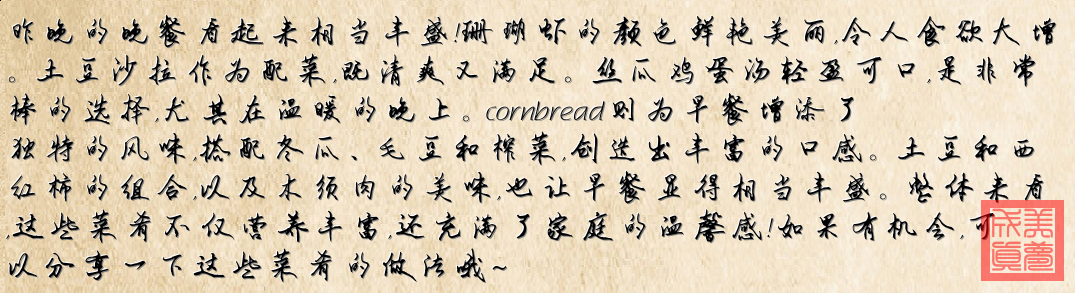 昨晚的晚餐看起来相当丰盛!珊瑚虾的颜色鲜艳美丽,令人食欲大增
。土豆沙拉作为配菜,既清爽又满足。丝瓜鸡蛋汤轻盈可口,是非常
棒的选择,尤其在温暖的晚上。cornbread则为早餐增添了
独特的风味,搭配冬瓜、毛豆和榨菜,创造出丰富的口感。土豆和西
红柿的组合,以及木须肉的美味,也让早餐显得相当丰盛。整体来看
,这些菜肴不仅营养丰富,还充满了家庭的温馨感!如果有机会,可
以分享一下这些菜肴的做法哦~
美梦成真